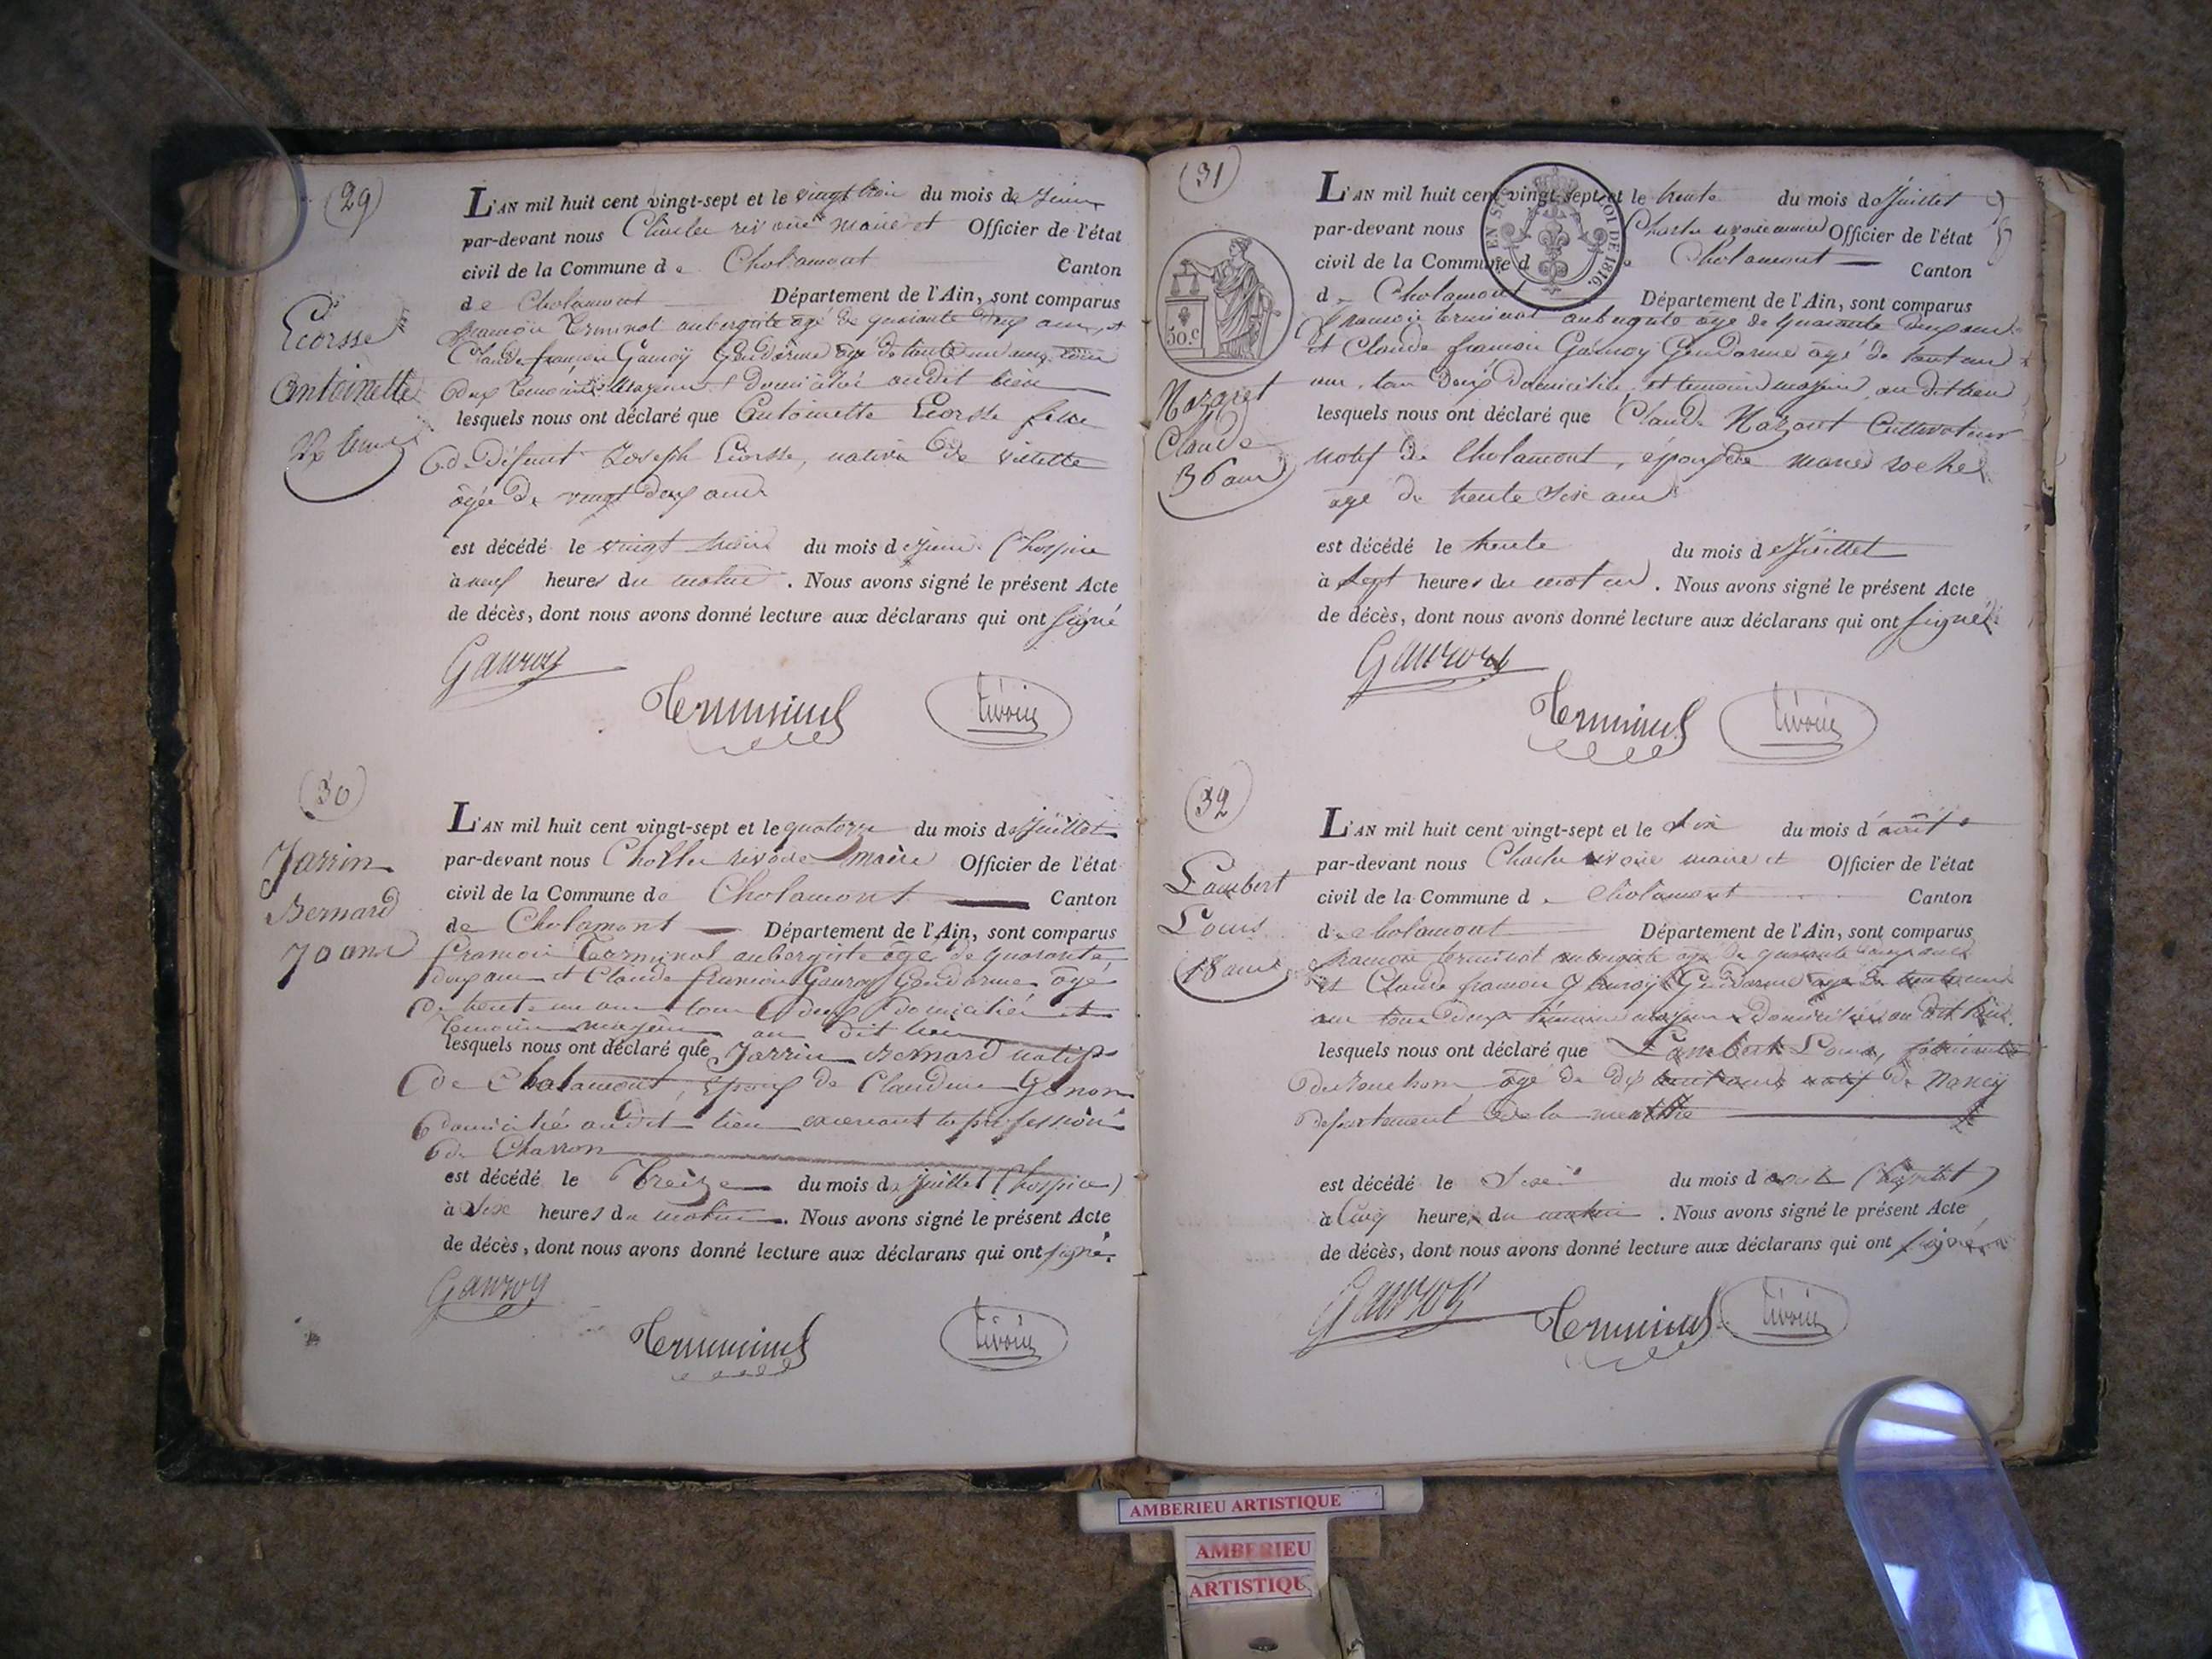 (29)
L'AN mil huit cent vingt-sept et le vingt trois du mois de Juin
par-devant nous Charles rivoire maire et Officier de l'état
civil de la Commune de Chalamont Canton
de Chalamont Département de l'Ain, sont comparus
françois Terminal aubergiste agé de quarante deux ans, et
Claude françois Gauroy Gendarme agé de trente un ans, tous
deux temoins Majeurs domiciliés audit lieu
lesquels nous ont déclaré que Antoinette Ecorsse fille
de Défunt Joseph Ecorsse, native de Villette
âgée de vingt deux ans
est décédé le vingt trois du mois de Juin (hospice
à neuf heures du matin. Nous avons signé le présent Acte
de décès, dont nous avons donné lecture aux déclarans qui ont signé
Gauroy
Terminal
rivoire
Ecorsse
Antoinette
22 ans
(30)
Jarrin
Bernard
70 ans
L'AN mil huit cent vingt-sept et le quatorze du mois de Juillet
par-devant nous Charles rivoire maire Officier de l'état
civil de la Commune de Chalamont Canton
de Chalamont Département de l'Ain, sont comparus
francois Terminal aubergiste agé de quarante
deux ans et Claude françois Gauroy Gendarme âgé
de trente un ans tous deux domiciliés et
temoins majeurs au dit lieu
lesquels nous ont déclaré que Jarrin Bernard natif
de Chalamont, époux de Claudine Genon
domicilié audit lieu exercant la profession
de Charron
est décédé le Treize du mois de Juillet (hospice)
à Six heures du matin. Nous avons signé le présent Acte
de décès, dont nous avons donné lecture aux déclarans qui ont signé.
Gauroy
Terminal
rivoire
(31)
L'AN mil huit cent vingt-sept et le trente du mois de Juillet
par-devant nous Charles rivoire maire Officier de l'état
civil de la Commune d Chalamont Canton
d Chalamont Département de l'Ain, sont comparus
francois terminal aubergiste âgé de quarante deux ans
et Claude francois Gauroy Gendarme âgé de trente un
ans, tous deux domiciliés et temoins majeurs au dit lieu
lesquels nous ont déclaré que Claude Nazaret Cultivateur
natif de Chalamont, époux de marie roche
agé de trente Six ans
est décédé le trente du mois de Juillet
à Sept heures du matin. Nous avons signé le présent Acte
de décès, dont nous avons donné lecture aux déclarans qui ont signé.
Gauroy
Terminal
rivoire
50.c
EN S OI DE 1816.
Nazaret
Claude
36 ans
32
Lambert
Louis
18 ans
L'AN mil huit cent vingt-sept et le Six du mois d'août
par-devant nous Charles rivoire maire et Officier de l'état
civil de la Commune d Chalamont Canton
d Chalamont Département de l'Ain, sont comparus
francois terminal aubergiste agé de quarante deux ans
et Claude francois Gauroy Gendarme agé de trente un
ans tous deux témoins majeurs Domiciliés au dit lieu.
lesquels nous ont déclaré que Lambert Louis,
âgé de dix huit ans natif de Nancy
departement de la meurthe
est décédé le Six du mois d août (hopital)
à Cinq heures du matin. Nous avons signé le présent Acte
de décès, dont nous avons donné lecture aux déclarans qui ont signé
Gauroy
Terminal
rivoire
AMBERIEU ARTISTIQUE
AMBERIEU
ARTISTIQU